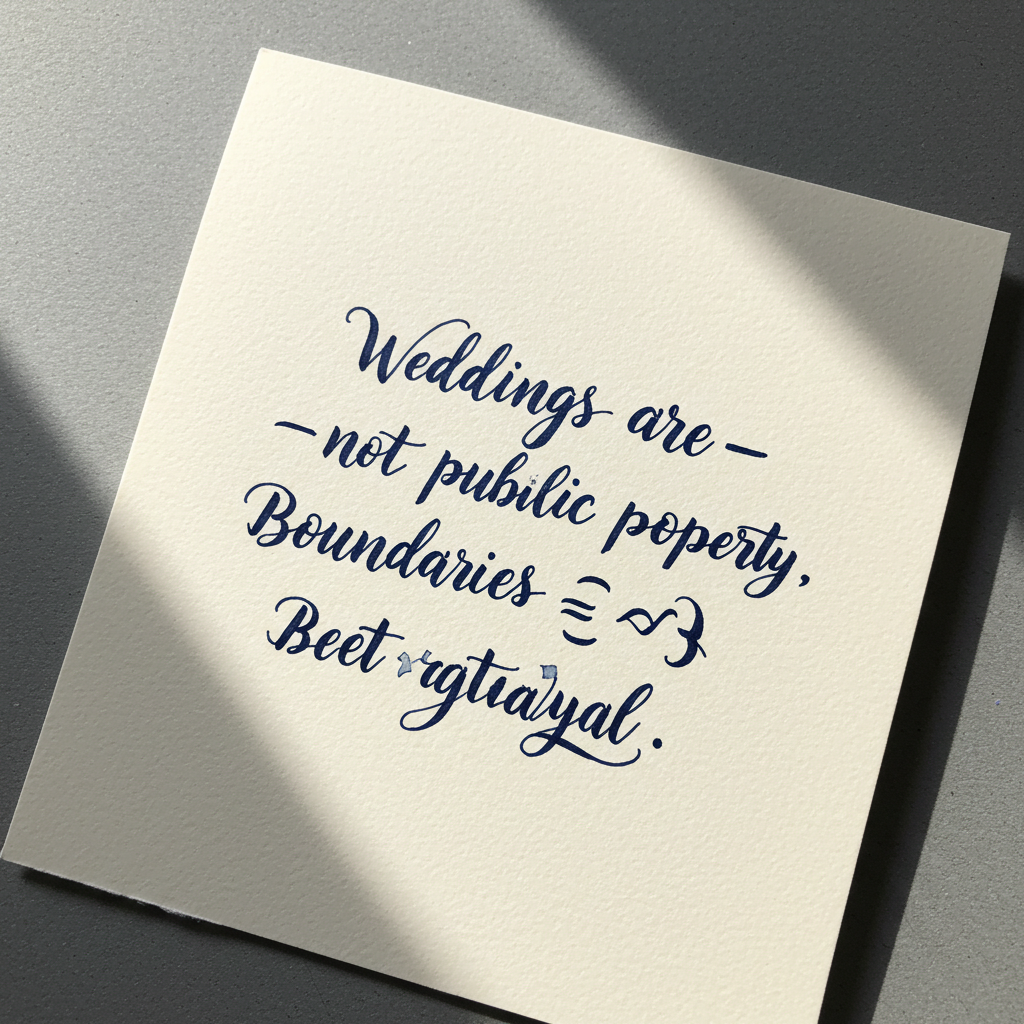 Weddings are —
— not pubilic poperty,
Boundaries
Beet